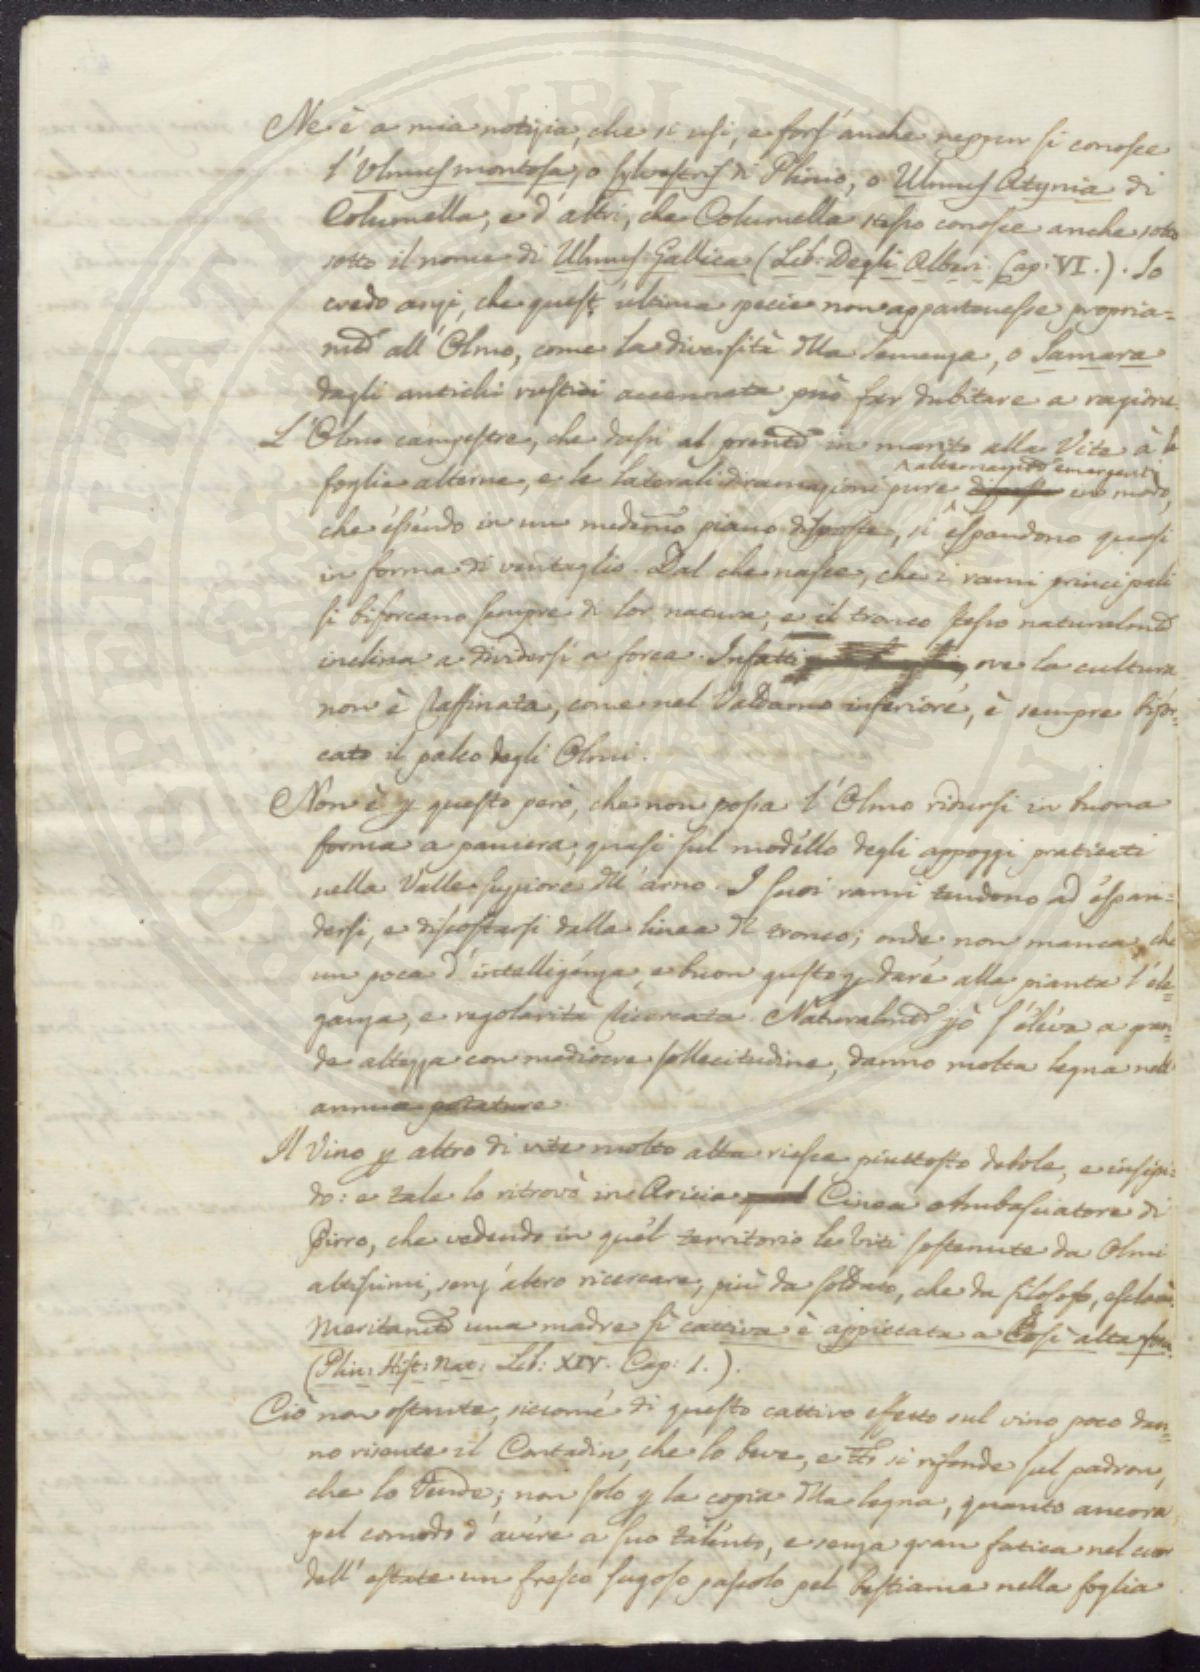 Ne è a mia notizia, che si usi, e fors'anche neppur si conosce
l'Ulmus montosa, o sylvestris di Plinio, o Ulmus Atynia di
Columella, e d'altri, che Columella stesso conosce anche sotto
sotto il nome di Ulmus Gallica (Lib: Degli Alberi Cap: VI.). Io
credo anzi, che quest' ultima specie non appartenesse propria=
mte all'Olmo, come la diversità dlla semenza, o Samara
dagli antichi rustici accennata può far dubitare a ragione.
L'Olmo campestre, che dassi al prente in marito alla Vite à le
foglie alterne, e le laterali diramazioni pure alternazionte emergenti in modo,
che essendo in un medemo piano disposte, si espandono quasi
in forma di ventaglio. Dal che nasce, che i rami principali
si biforcano sempre di lor natura, e il tronco stesso naturalmte
inclina a dividersi a forca. Infatti, ove la cultura
non è raffinata, come nel Valdarno inferiore, è sempre bifor=
cato il palco degli Olmi.
Non è p questo però, che non possa l'Olmo ridursi in buona
forma a paniera, quasi sul modello degli appoggi praticati
nella Valle suppiore dll'arno. I suoi rami tendono ad espan=
dersi, e discostarsi dalla linea dl tronco; onde non manca, che
un poca d'intelligenza, e buon gusto p dare alla pianta l'ele=
ganza, e regolarità ricercata. Naturalmte pò s'eleva a gran=
de altezza con mediocre sollecitudine, danno molta legna nell'
annua potature.
Il Vino p altro di vite molto alta riesce piuttosto debole, e insipi=
do: e tale lo ritrovò in Aricia Cinea Ambasciatore di
Pirro, che vedendo in quel territorio le Viti sostenute da Olmi
altissimi, senz'altro ricercare, più da soldato, che da filosofo, esclamò:
Meritamte una madre sì cattiva è appiccata a Così alta forca.
(Plin: Hist: Nat: Lib: XIV. Cap: 1.).
Ciò non ostante, siccome di questo cattivo effetto sul vino poco dan=
no risente il Contadin, che lo beve, e tto si rifonde sul padron,
che lo Vende; non solo p la copia dlla legna, quanto ancora
pel comodo d'avere a suo talento, e senza gran fatica nel cuor
dell'estate un fresco sugoso pascolo pel bestiame nella foglia